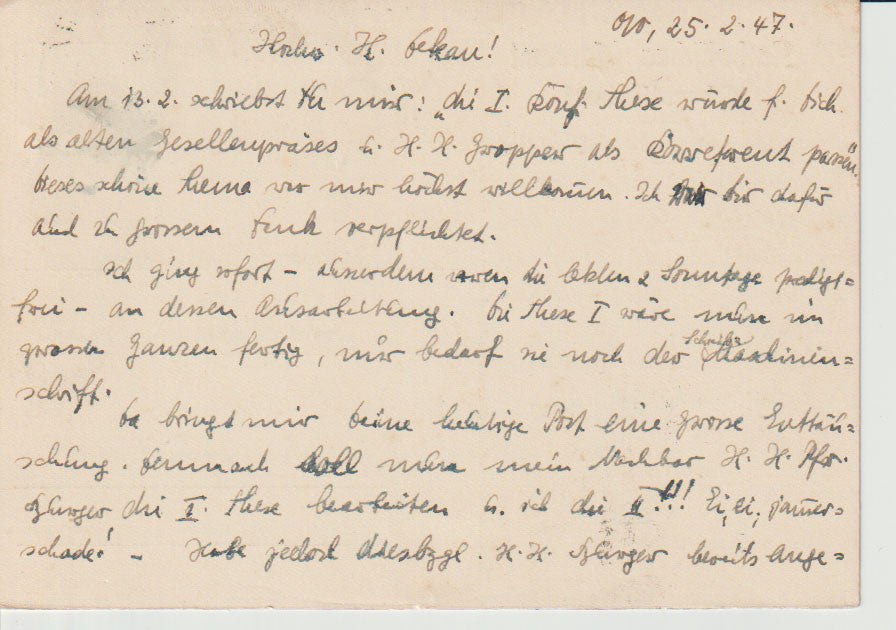 25. 2. 47.
Hochw. H. Dekan!
Am 13. 2. schriebst Du mir: „die I. Konf. These würde f. Dich
als alten Gesellenpräses u. H. H. Gropper als Korreferent passen".
Dieses schöne Thema war mir höchst willkommen. Ich bin dir dafür
auch zu grossem Dank verpflichtet.
Ich ging sofort – ausserdem waren die letzten 2 Sonntage predigt=
frei – an dessen Ausarbeitung. Die These I wäre nun im
grossen Ganzen fertig, nur bedarf sie noch der Schreib=Maschinen=
schrift.
Da bringt mir Deine heutige Post eine grosse Enttäu=
schung. Demnach soll nun mein Nachbar H. H. Pfr.
die I. These bearbeiten u. ich die II!!! Ei, ei, jammer=
schade! – Habe jedoch diesbzgl. H. H. bereits ange=